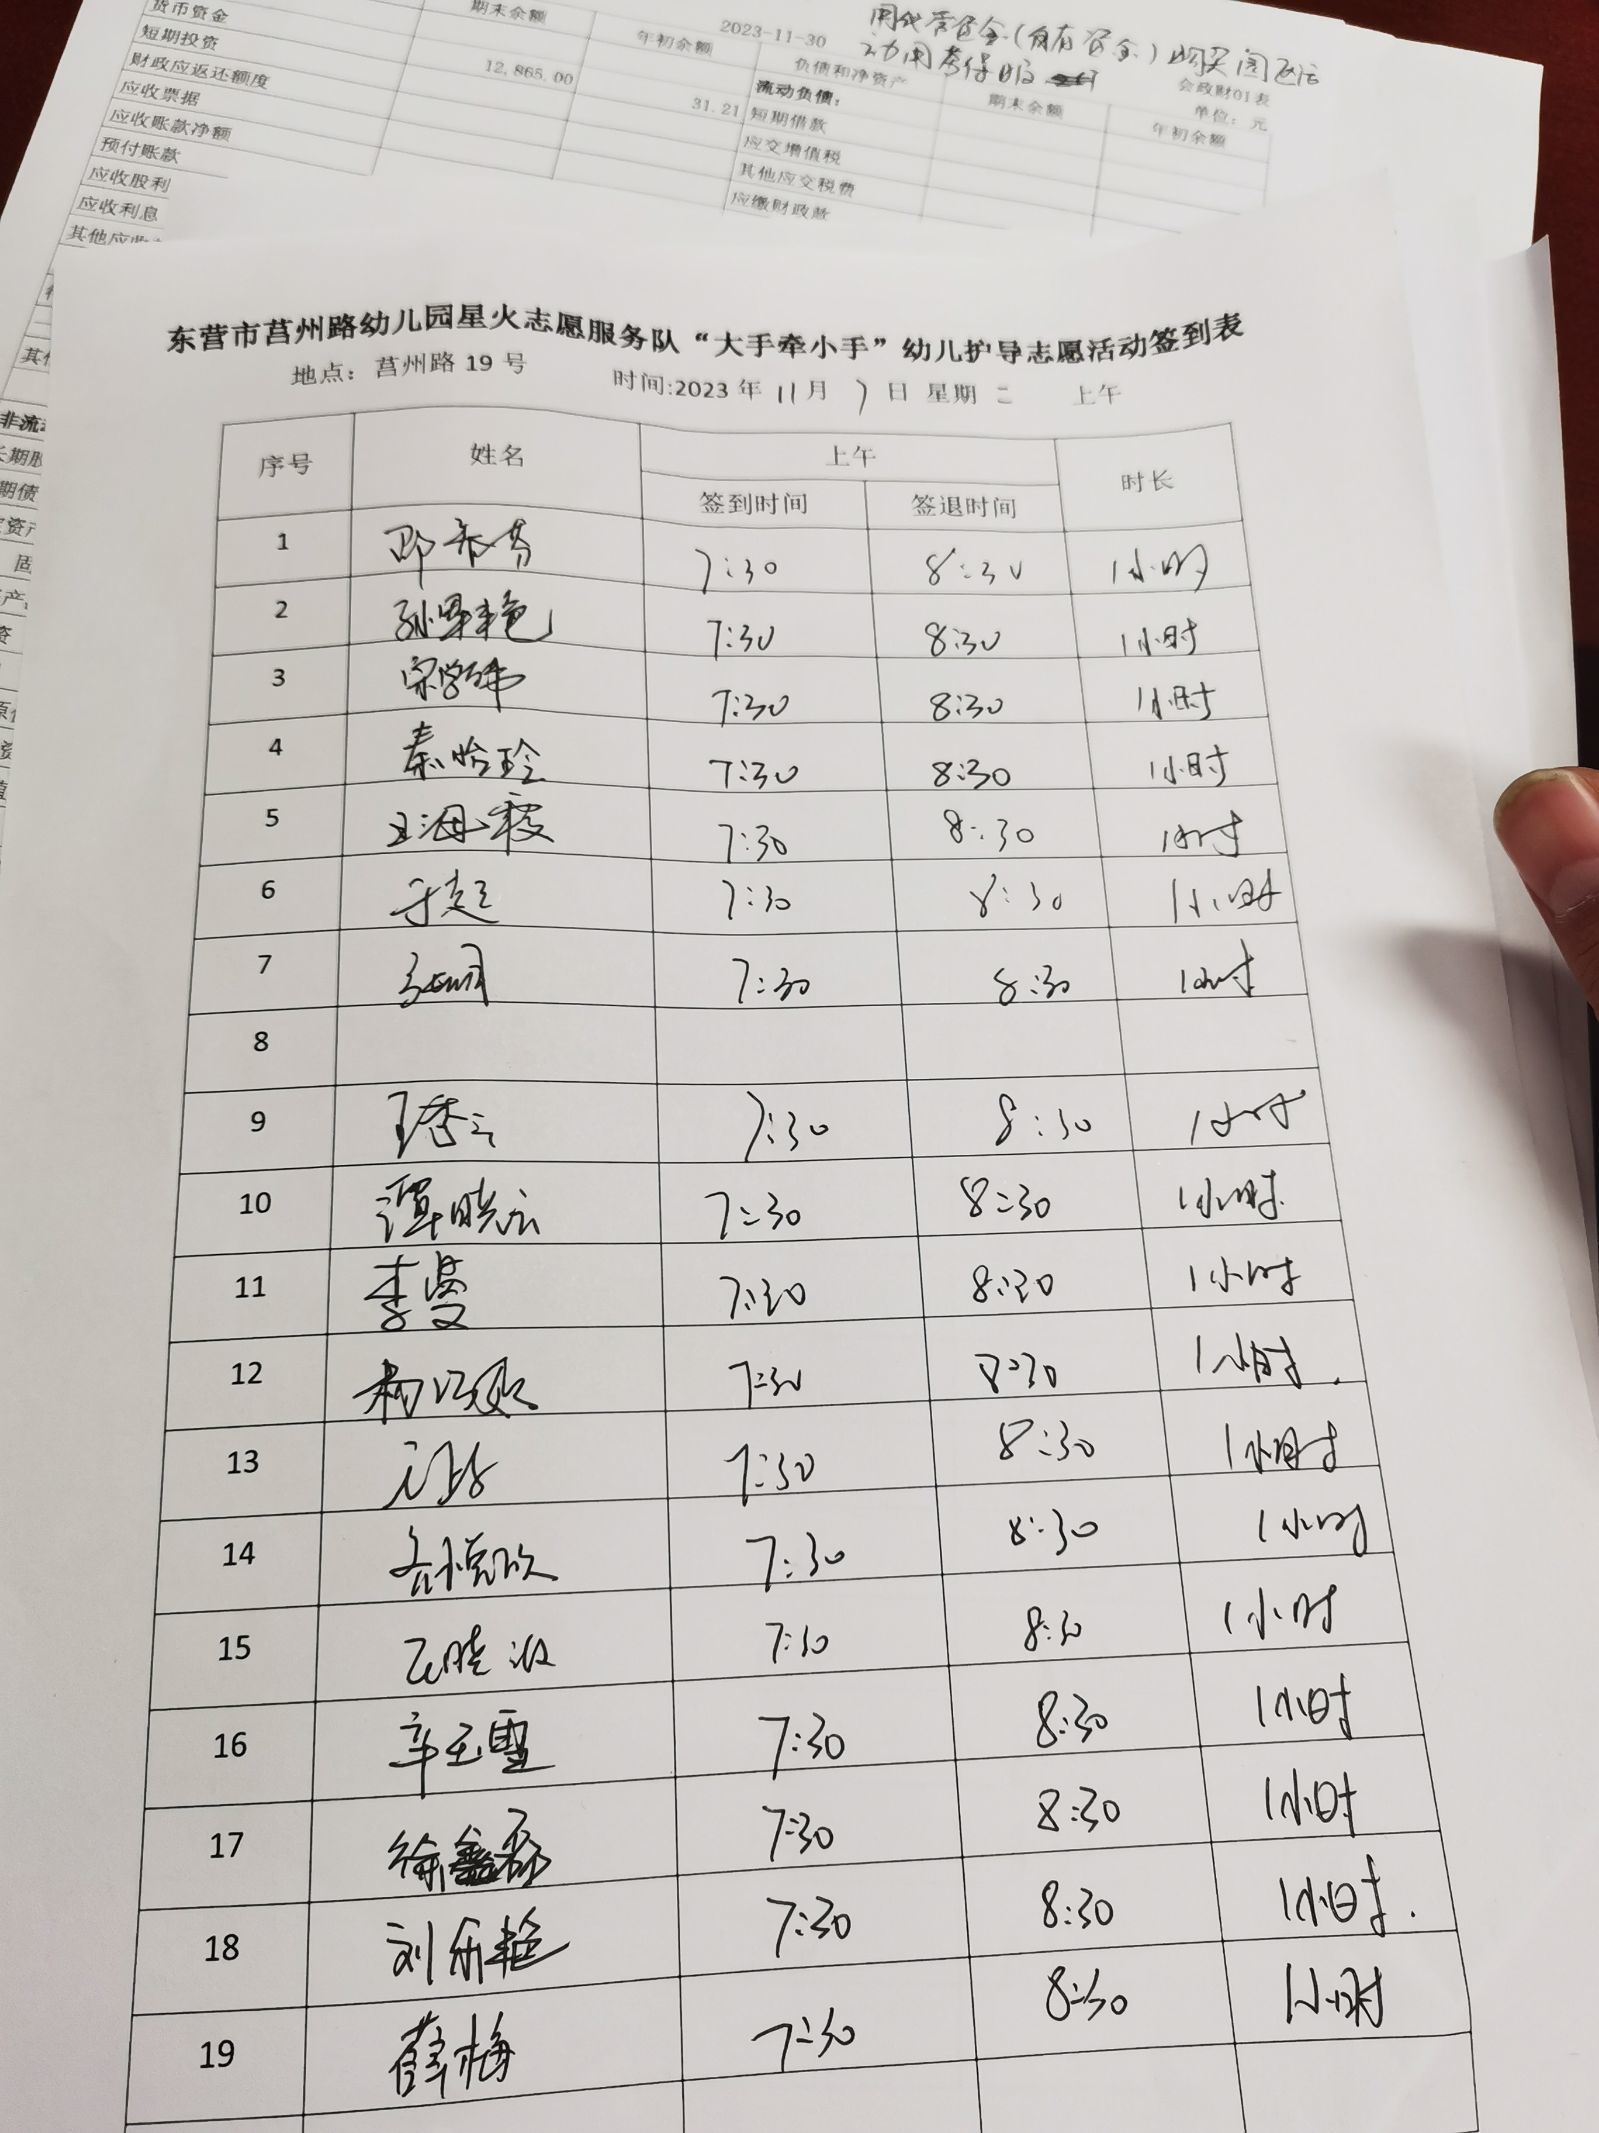 货币资金
期末余额
年初余额
2023-11-30
负债和净资产
会政财01表
短期投资
12,865.00
流动负债：
期末余额
单位：元
财政应返还额度
31.21
短期借款
年初余额
应收票据
应交增值税
应收账款净额
其他应交税费
预付账款
应缴财政款
应收股利
应收利息
其他应收
东营市莒州路幼儿园星火志愿服务队“大手牵小手”幼儿护导志愿活动签到表
地点：莒州路19号 时间:2023年11月7日 星期二 上午
序号 姓名 上午 时长
签到时间 签退时间
1 7:30 8:30 1小时
2 7:30 8:30 1小时
3 宋学伟 7:30 8:30 1小时
4 秦怡玲 7:30 8:30 1小时
5 王海霞 7:30 8:30 1小时
6 于超 7:30 8:30 1小时
7 7:30 8:30 1小时
8
9 王秀云 7:30 8:30 1小时
10 谭晓云 7:30 8:30 1小时
11 李曼 7:30 8:30 1小时
12 7:30 8:30 1小时.
13 7:30 8:30 1小时
14 7:30 8:30 1小时
15 7:30 8:30 1小时
16 辛玉雪 7:30 8:30 1小时
17 徐鑫磊 7:30 8:30 1小时
18 刘乐艳 7:30 8:30 1小时.
19 薛梅 7:30 8:30 1小时